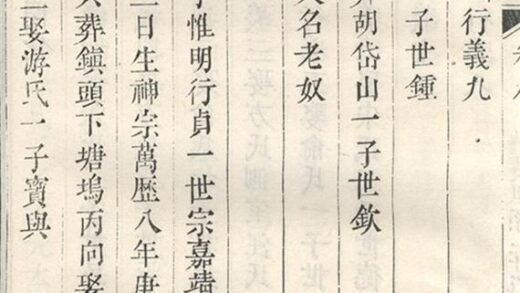 行義九
子世鍾
胡岱山一子世欽
名老奴
子惟明行貞一世宗嘉靖
二日生神宗萬歷八年庚
葬鎮頭下塘塢丙向娶
娶游氏一子寶與